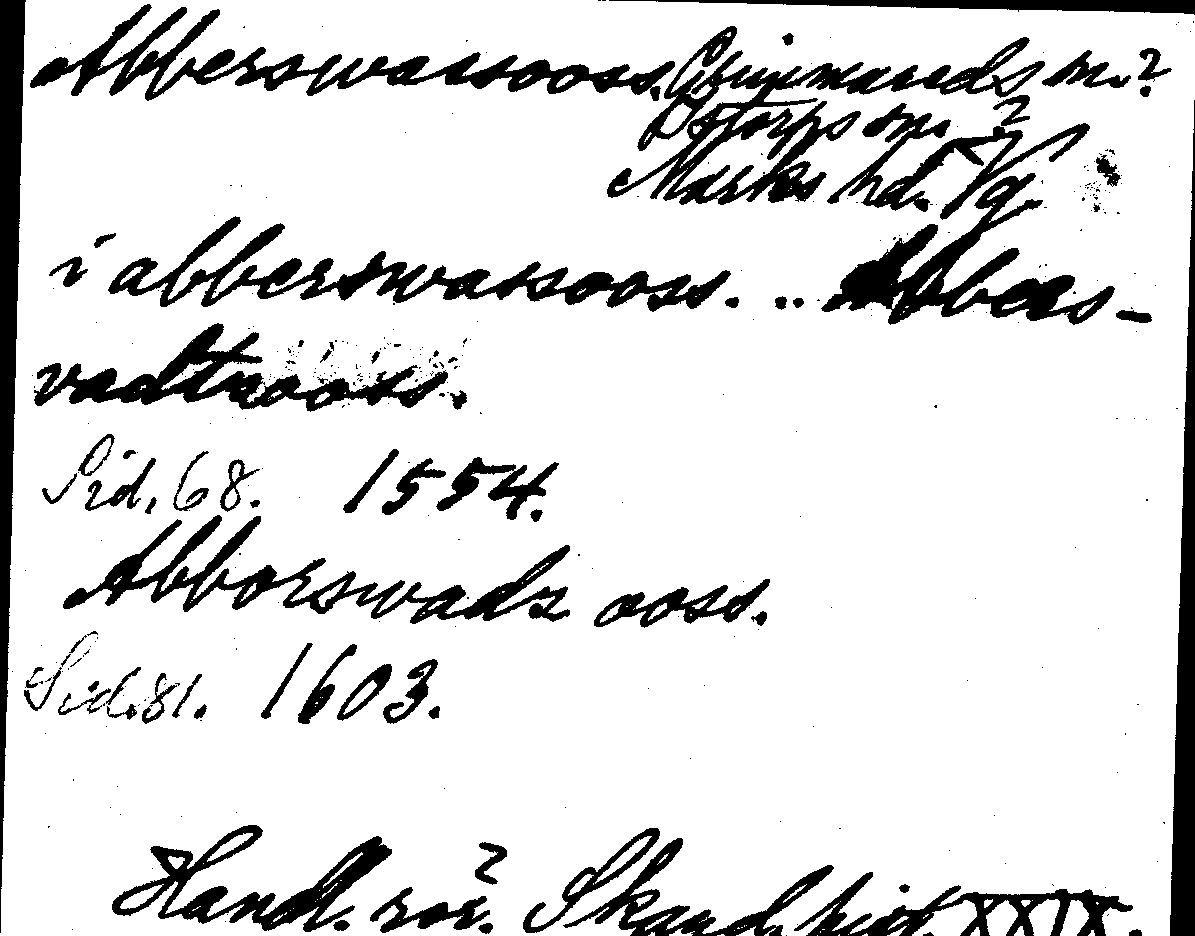 Abberswassooss. Grimmareds sn.?
Istorps sn. ?
Marks hd. Vg.
i abberswassooss. .. Abbers-
vadtnooss.
Sid. 68. 1554.
Abborswadz ooss.
Sid. 81. 1603.
Handl. rör. Skand. hist. XXIX.